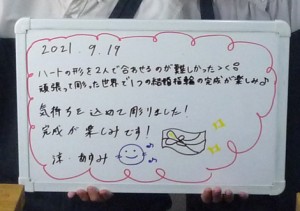 2021. 9. 19
ハートの形を2人で合わせるのが難しかった>< 
頑張って彫った世界で1つの結婚指輪の完成が楽しみ♪
気持ちを込めて彫りました!
完成が楽しみです!
あゆみ